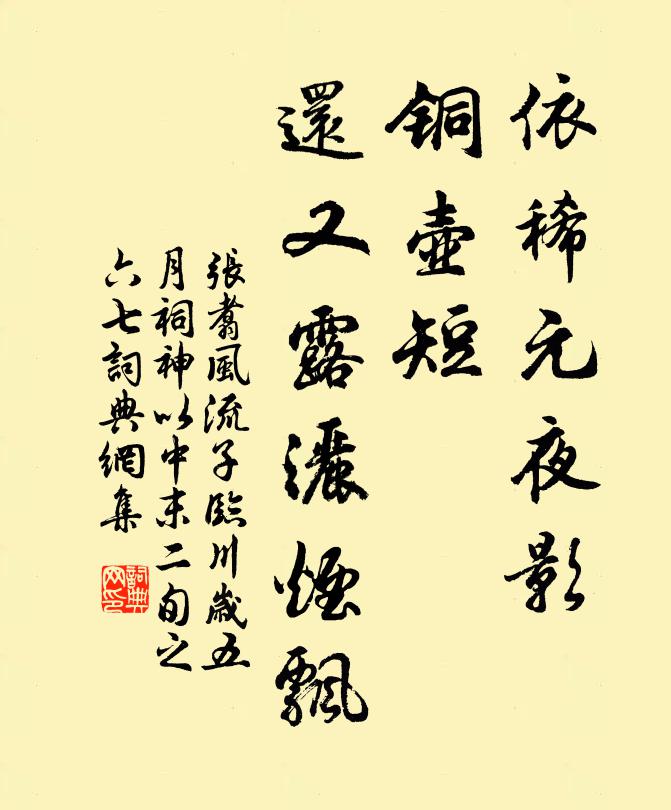 依稀元夜影
銅壺短
還又露灑煙飄
張翥風流子臨川歲五
月祠神以中末二旬之
六七詞典網集
詞典網印